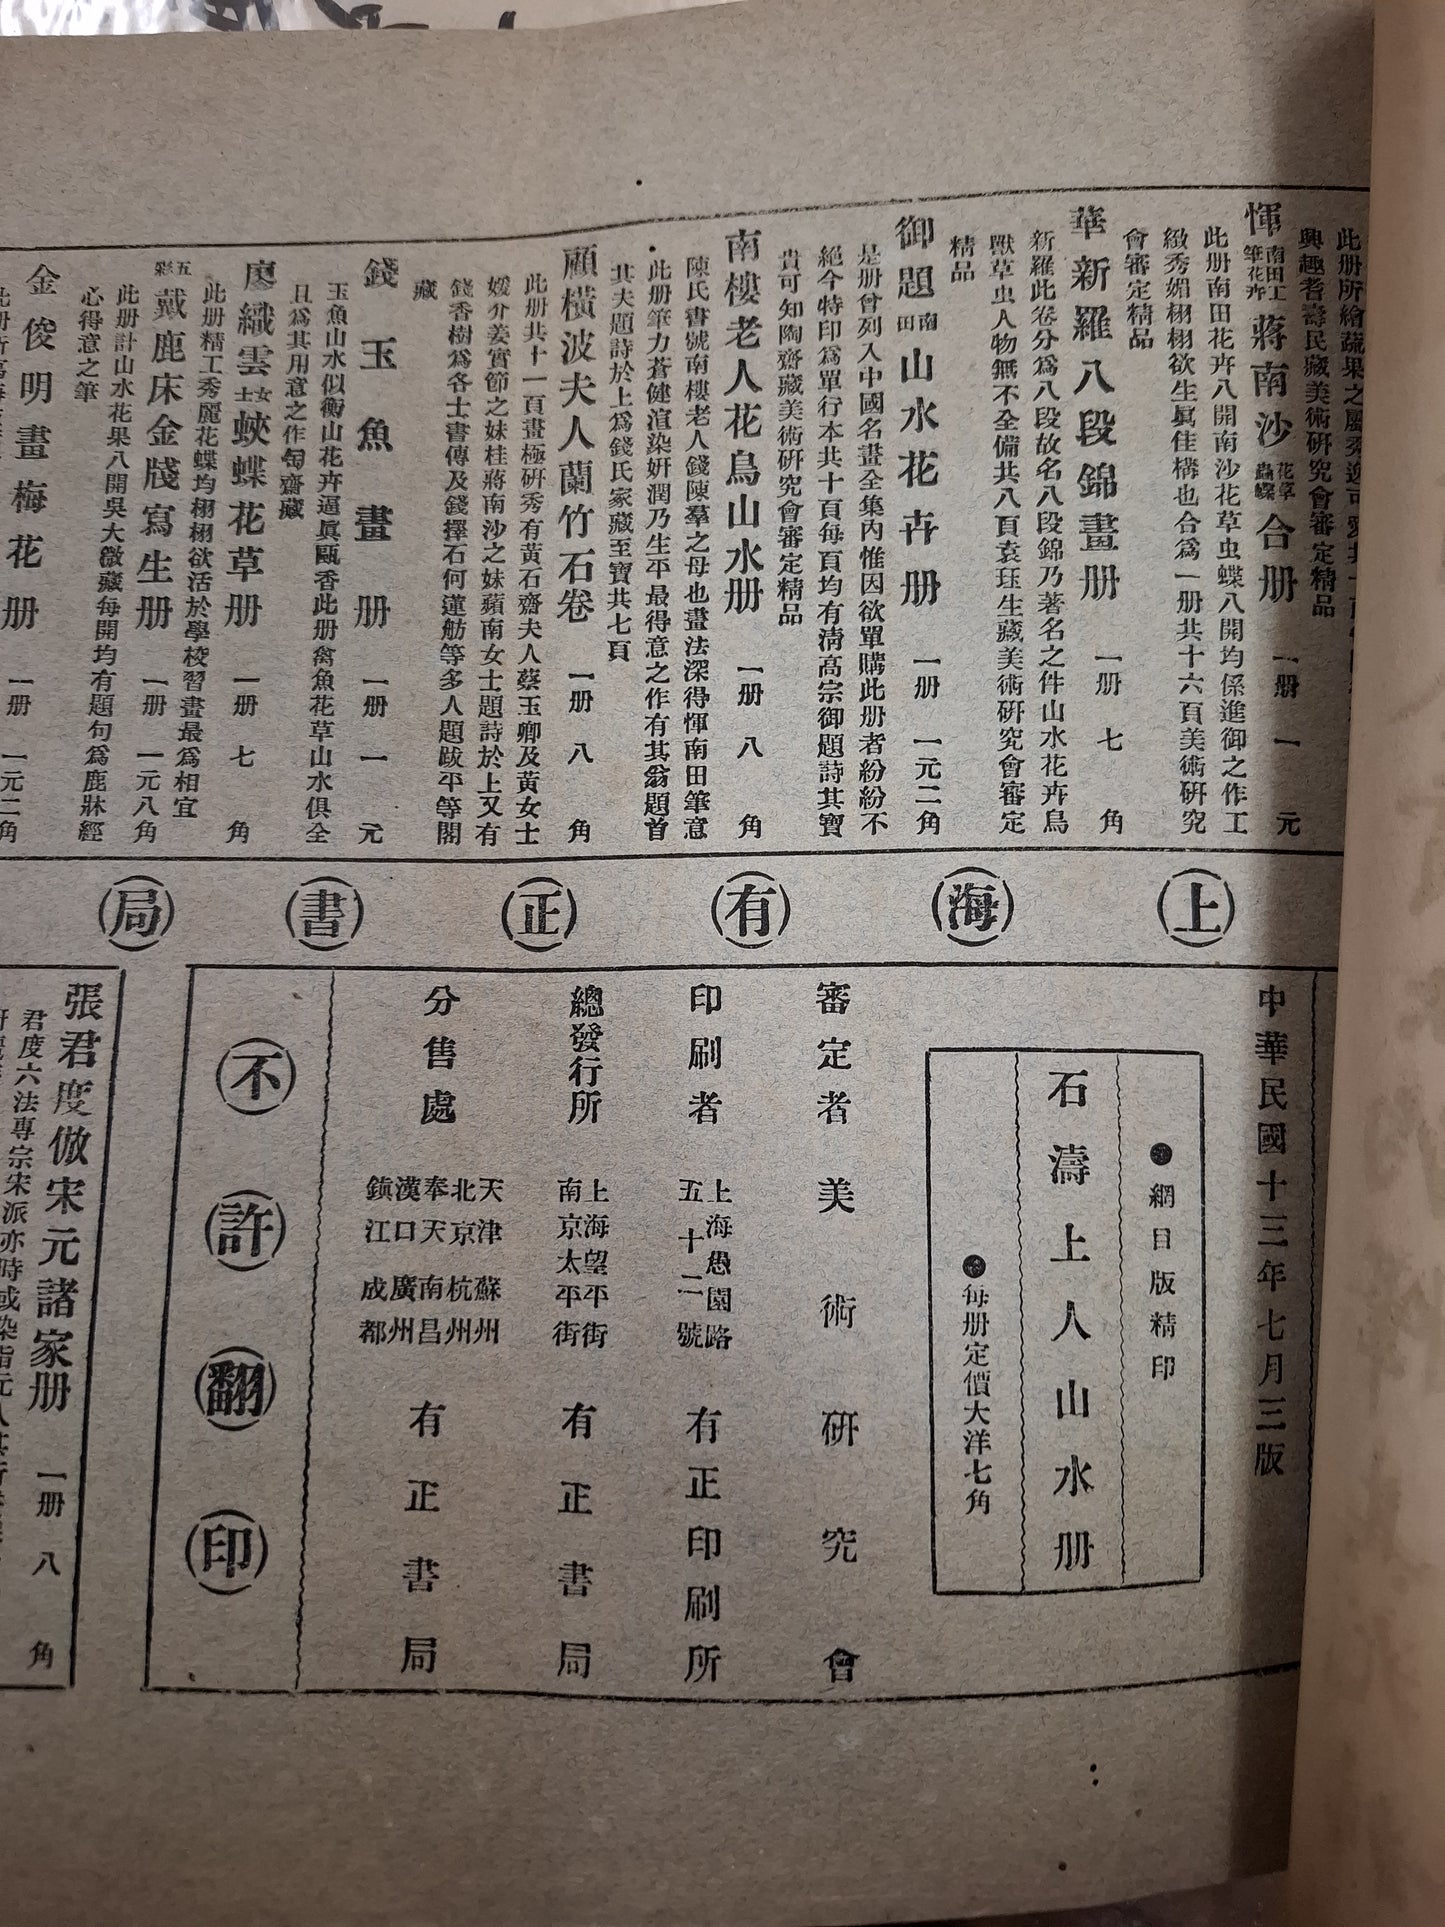 此册所繪蔬果之屬秀逸可愛共十
興趣耆壽民藏美術研究會審定精品
惲南田工筆花卉蔣南沙花草蟲蝶合册 一册 一元
此册南田花卉八開南沙花草虫蝶八開均係進御之作工
緻秀媚栩栩欲生眞佳構也合爲一册共十六頁美術研究
會審定精品
華新羅八段錦畫册 一册 七角
新羅此卷分爲八段故名八段錦乃著名之件山水花卉鳥
獸草虫人物無不全備共八頁袁珏生藏美術研究會審定
精品
御題南田山水花卉册 一册 一元二角
是册曾列入中國名畫全集內惟因欲單購此册者紛紛不
絕今特印爲單行本共十頁每頁均有淸高宗御題詩其寶
貴可知陶齋藏美術研究會審定精品
南樓老人花鳥山水册 一册 八角
陳氏書號南樓老人錢陳羣之母也畫法深得惲南田筆意
此册筆力蒼健渲染妍潤乃生平最得意之作有其翁題首
其夫題詩於上爲錢氏家藏至寶共七頁
顧橫波夫人蘭竹石卷 一册 八角
此册共十一頁畫極硏秀有黃石齋夫人蔡玉卿及黃女士
媛介姜實節之妹桂蔣南沙之妹蘋南女士題詩於上又有
錢香樹爲各士書傳及錢擇石何蓮舫等多人題跋平等閣
藏
錢玉魚畫册 一册 一元
玉魚山水似衡山花卉逼眞甌香此册禽魚花草山水俱全
且爲其用意之作匋齋藏
廖織雲女士蛺蝶花草册 一册 七角
此册精工秀麗花蝶均栩栩欲活於學校習畫最爲相宜
五彩戴鹿床金牋寫生册 一册 一元八角
此册計山水花果八開吳大澂藏每開均有題句爲鹿牀經
心得意之筆
金俊明畫梅花册 一册 一元二角
上海有正書局
中華民國十三年七月三版
●網目版精印
石濤上人山水册
●每册定價大洋七角
審定者 美術研究會
印刷者 上海愚園路五十二號 有正印刷所
總發行所 上海望平街南京太平街 有正書局
分售處 天津 北京 奉天 漢口 鎮江 蘇州 杭州 南昌 廣州 成都 有正書局
不許翻印
張君度倣宋元諸家册 一册 八角
君度六法專宗宋派亦時或染指元人